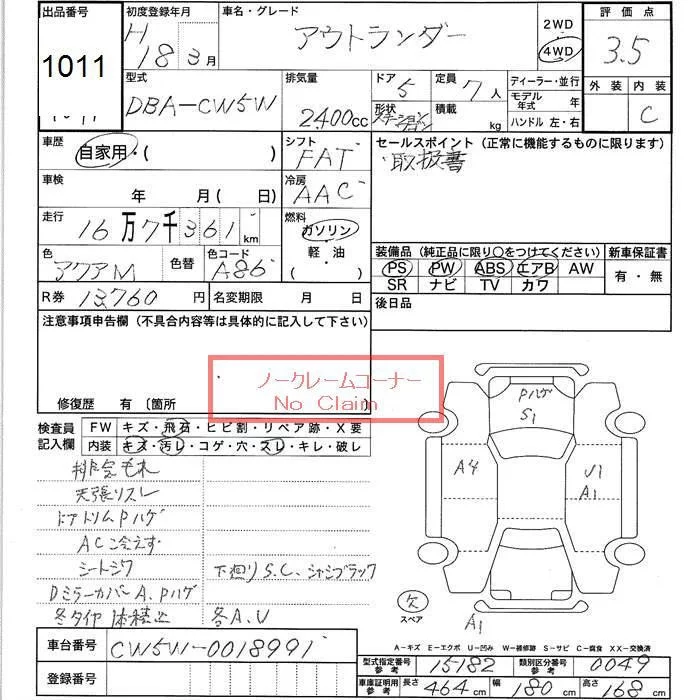 出品番号 初度登録年月 車名・グレード 2WD 評価点
1011 H18 3月 アウトランダー 4WD 3.5
外装 内装
C
型式 排気量 ドア 定員 ディーラー・並行
DBA-CW5W 2400cc 5 7人 モデル年式 年
形状 積載 kg ハンドル 左・右
車歴 シフト セールスポイント(正常に機能するものに限ります)
自家用・( ) FAT 取扱書
車検 冷房
年 月( 日) AAC
走行 燃料
16万7千361km ガソリン
軽・油
( )
色 色替 色コード 装備品(純正品に限り○をつけてください) 新車保証書
アクアM A86 PS PW ABS エアB AW 有・無
SR ナビ TV カワ
R券 13,760円 名変期限 月 日 後日品
注意事項申告欄(不具合内容等は具体的に記入して下さい)
ノークレームコーナー
No Claim
修復歴 有〔箇所
Pハゲ
S1
検査員 FW キズ・飛石・ヒビ割・リペア跡・X要
記入欄 内装 キズ・汚レ・コゲ・穴・スレ・キレ・破レ
A4 U1
A1
天張リスレ
ドアトリムPハゲ
AC冷えず
シートシワ 下廻りS.C、シャシブラック
DミラーカバーA、Pハゲ
冬タイヤ 体積込 各A、U
欠
スペア
A1
A-キズ E-エクボ U-凹み W-補修跡 S-サビ C-腐食 XX-交換済
車台番号 CW5W-0018991
型式指定番号 参考 15182 類別区分番号 参考 0049
登録番号
車庫証明用 参考 長さ 464cm 幅 180cm 高さ 168cm